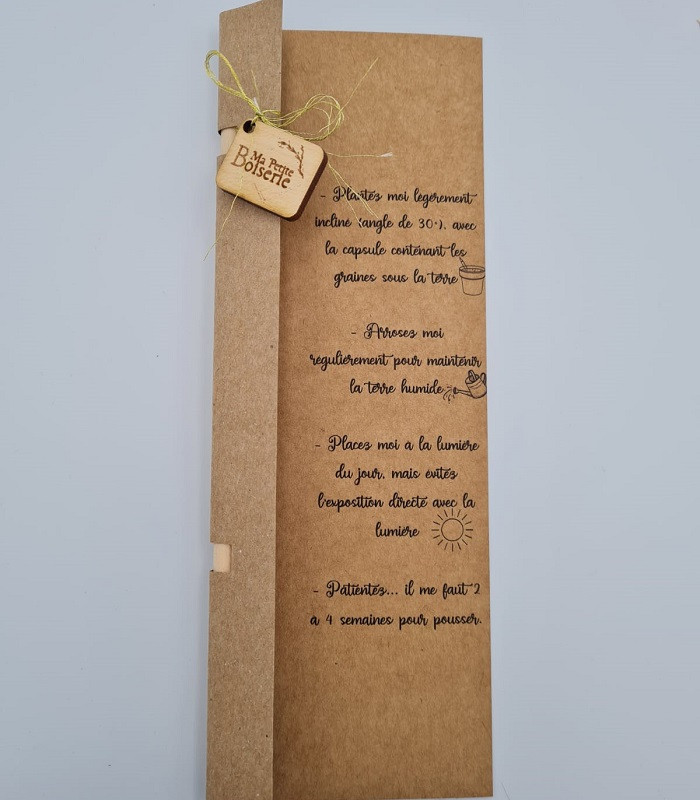 Ma Petite
Boiserie
- Plantez moi légèrement
incliné (angle de 30°), avec
la capsule contenant les
graines sous la terre
- Arrosez moi
régulièrement pour maintenir
la terre humide
- Placez moi à la lumière
du jour, mais évitez
l'exposition directe avec la
lumière
- Patientez... il me faut 2
à 4 semaines pour pousser.